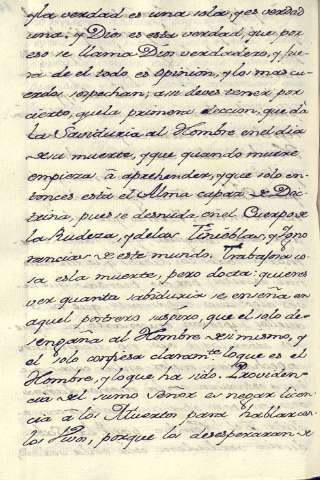 y la verdad es una sola, y es verdad
una: y Dios es esta verdad, que por
eso se llama Dios verdadero, y fue
ra de el todo es opinion, y los mas cu
erdos sospechan; asi deves tener por
cierto, que la primera leccion, que da
la Saviduria al Hombre en el dia
de su muerte, y que quando muere
empieza à aprehender, y que solo en
tonces està el Alma capaz de Doc
trina, pues se desnuda en el Cuerpo de
la Rudeza, y de las Tinieblas, y Igno
rancias de este mundo. Trabajosa co
sa es la muerte, pero docta: quieres
ver quanta sabiduria se enseña en
aquel postrero suspiro, que el solo de
sengaña al Hombre de si mismo, y
el solo confiesa claram.te lo que es el
Hombre, y lo que ha sido. Providen
cia del sumo Señor es negar licen
cia à los Muertos para hablar con
los Vivos, porque los desesperaran de